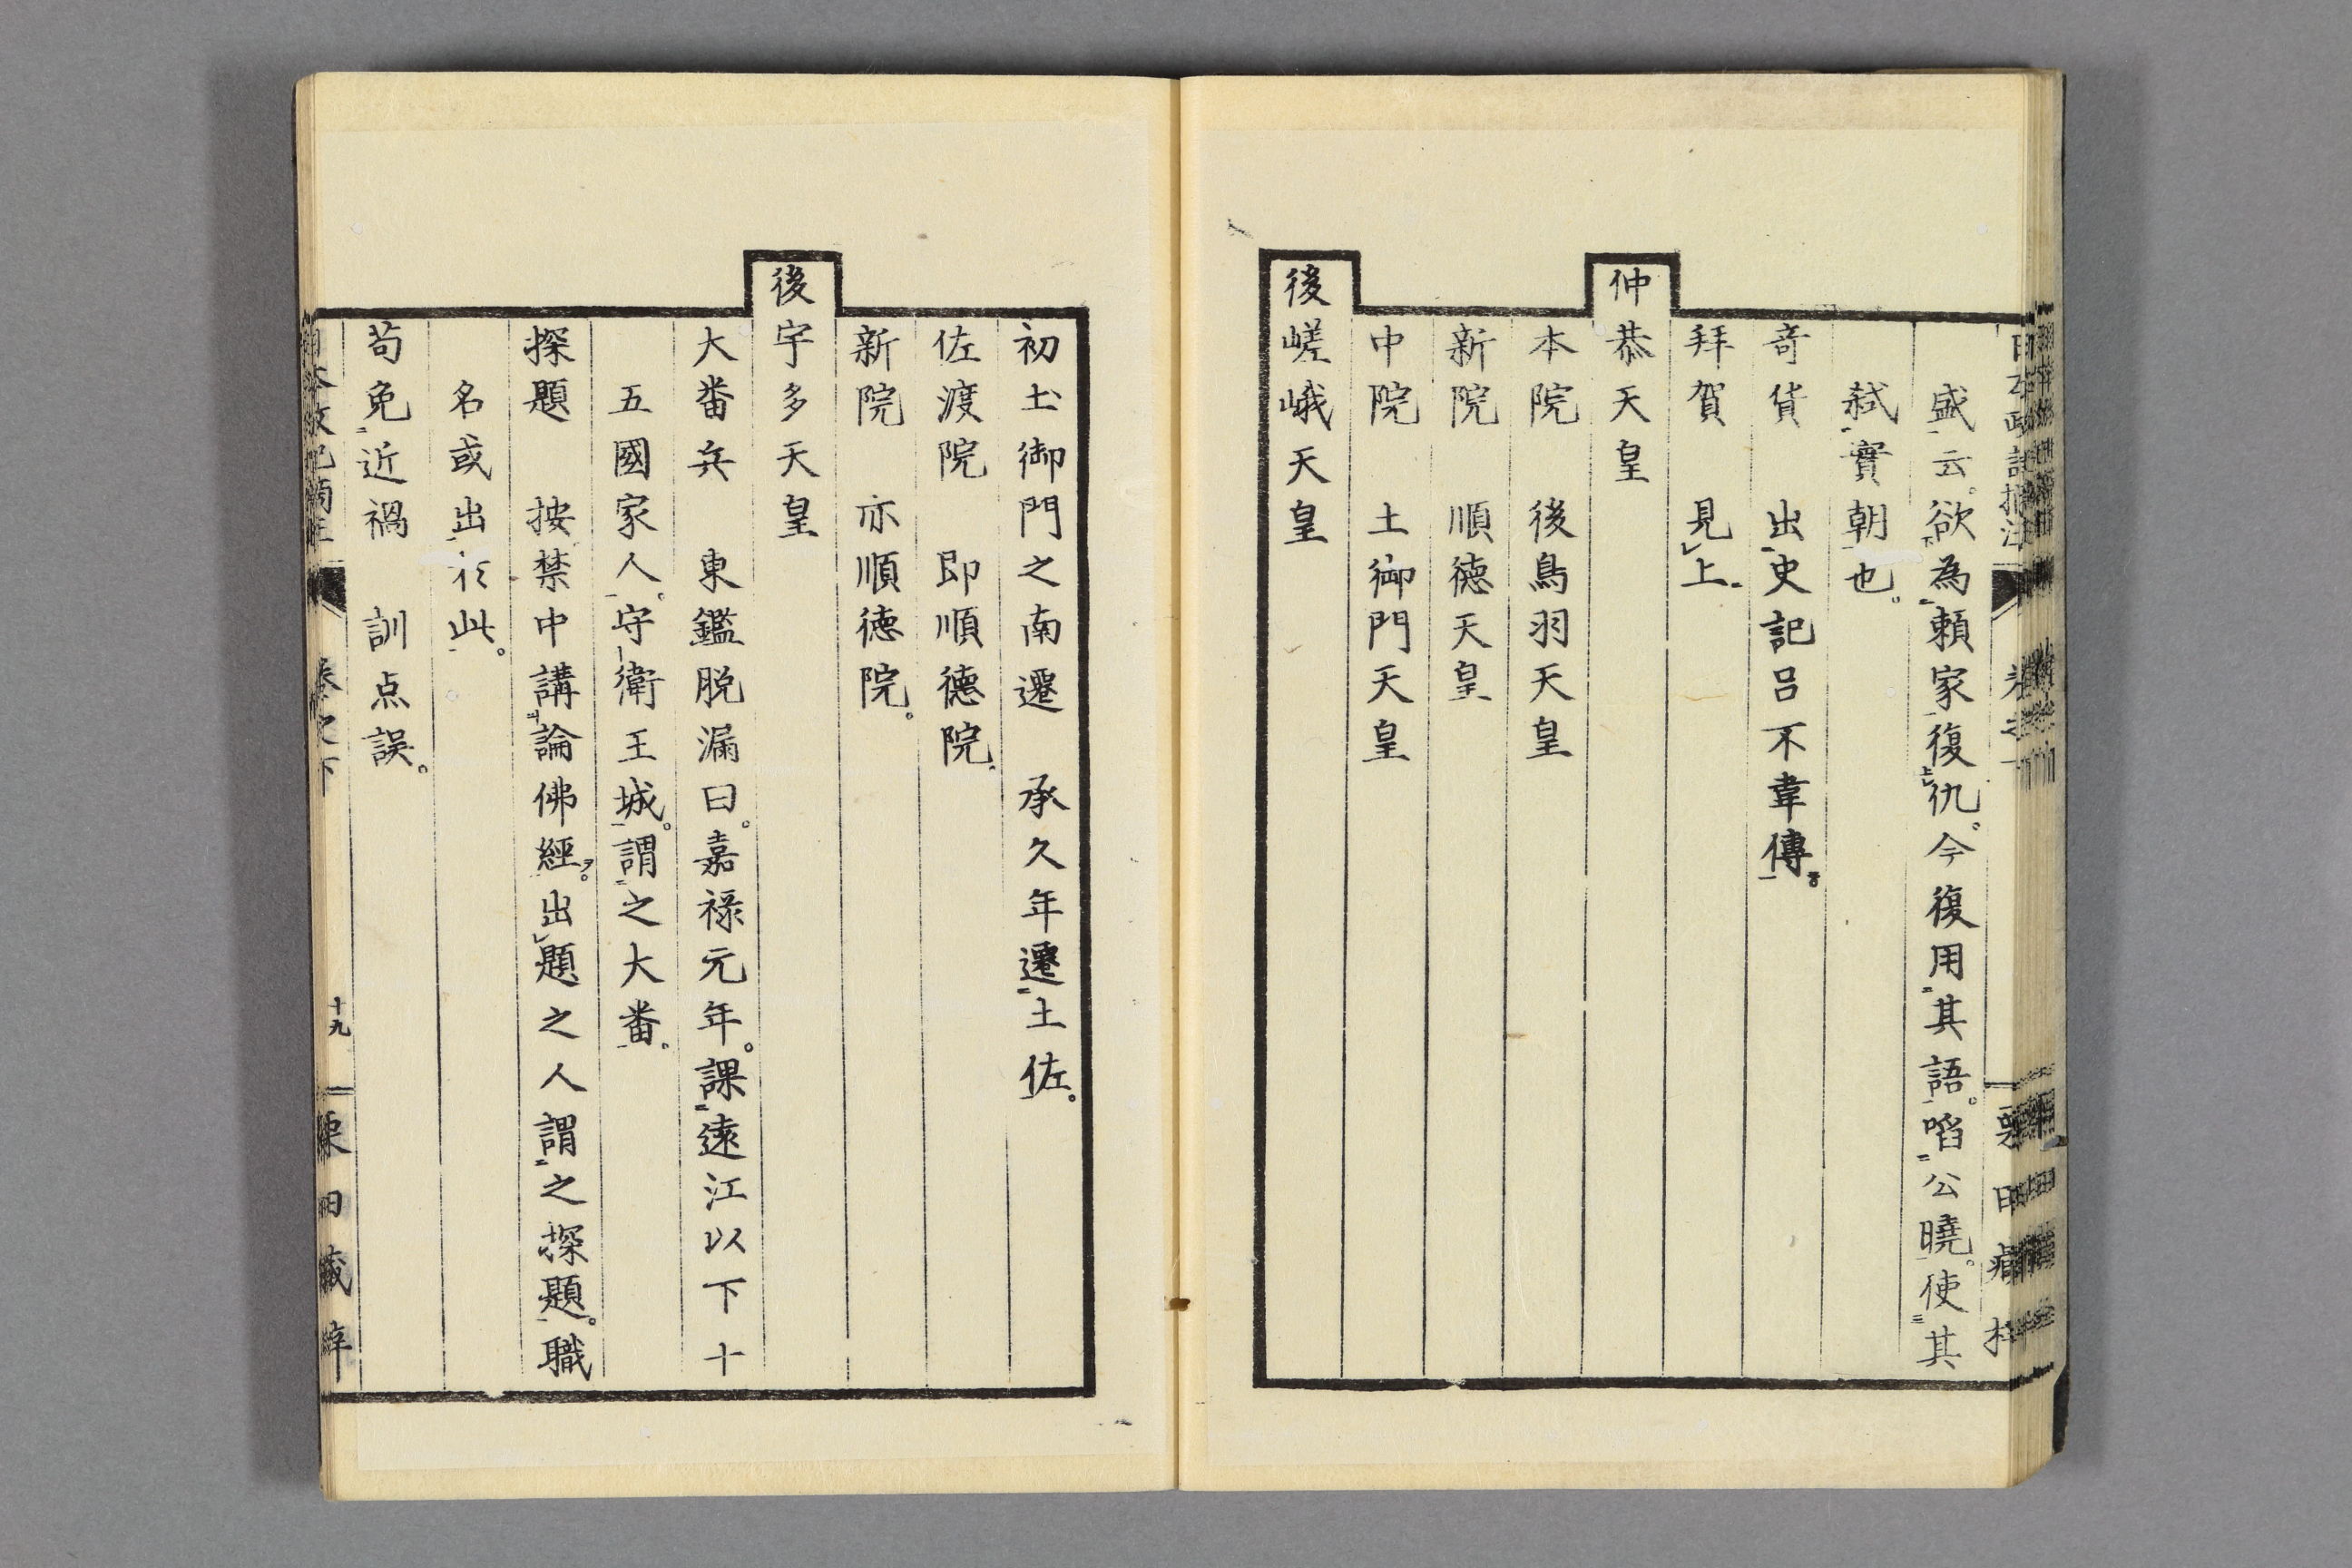 盛云。欲為頼家復仇。今復用其語。啗公曉。使其
弑實朝也。
奇貨　出史記呂不韋傳。
拜賀　見上。
仲恭天皇
本院　後鳥羽天皇
新院　順徳天皇
中院　土御門天皇
後嵯峨天皇
初土御門之南遷　承久年遷土佐。
佐渡院　即順徳院。
新院　亦順徳院。
後宇多天皇
大畨兵　東鑑脱漏曰。嘉禄元年。課遠江以下十
五國家人。守衛王城。謂之大畨。
探題　按禁中講論佛經。出題之人謂之探題。職
名或出於此。
苟免近禍　訓点誤。
十九